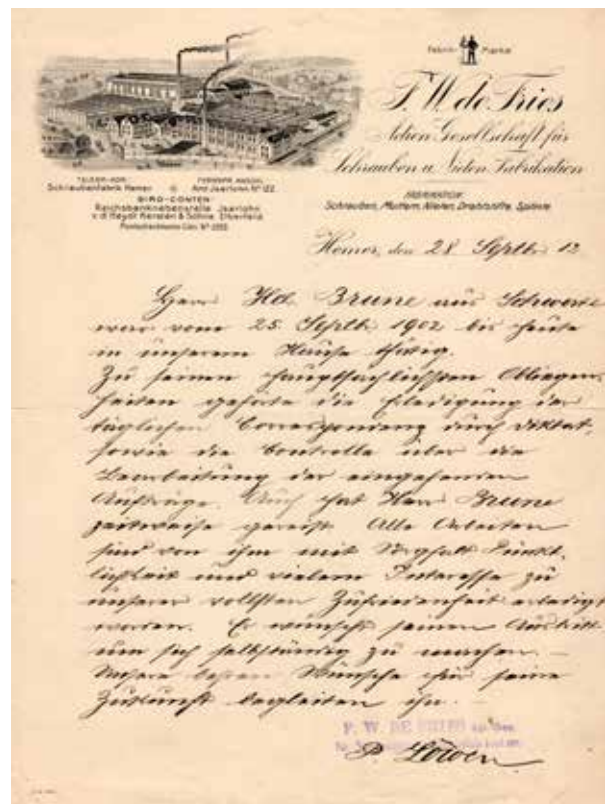 Fabrik- Marke
F. W. de Fries
Actien Gesellschaft für
Schrauben u. Nieten Fabrikation
TELEGR.-ADR.: FERNSPR. ANSCHL.
Schraubenfabrik Hemer Amt Iserlohn Nº 122
GIRO-CONTEN
Reichsbanknebenstelle Iserlohn
v. d. Heydt Kersten & Söhne Elberfeld
Schrauben, Muttern, Nieten, Drahtstifte, Splinte
Hemer, den 28 Septbr. 12
Herr Hch. Brune aus Schwerte
war vom 25. Septbr. 1902 bis heute
in unserem Hause thätig.
Zu seinen hauptsächlichsten Obliegen-
heiten gehörte die Erledigung der
täglichen Correspondenz durch Diktat,
sowie die Controlle über die
Bearbeitung der eingehenden
Aufträge. Auch hat Herr Brune
zeitweise gereist. Alle Arbeiten
sind von ihm mit Sorgfalt Pünkt-
lichkeit und vielem Interesse zu
unserer vollsten Zufriedenheit erledigt
worden. Er wünscht seinen Austritt
um sich selbständig zu machen. –
Unsere besten Wünsche für seine
Zukunft begleiten ihn. –
F. W. DE FRIES
P. Löwen